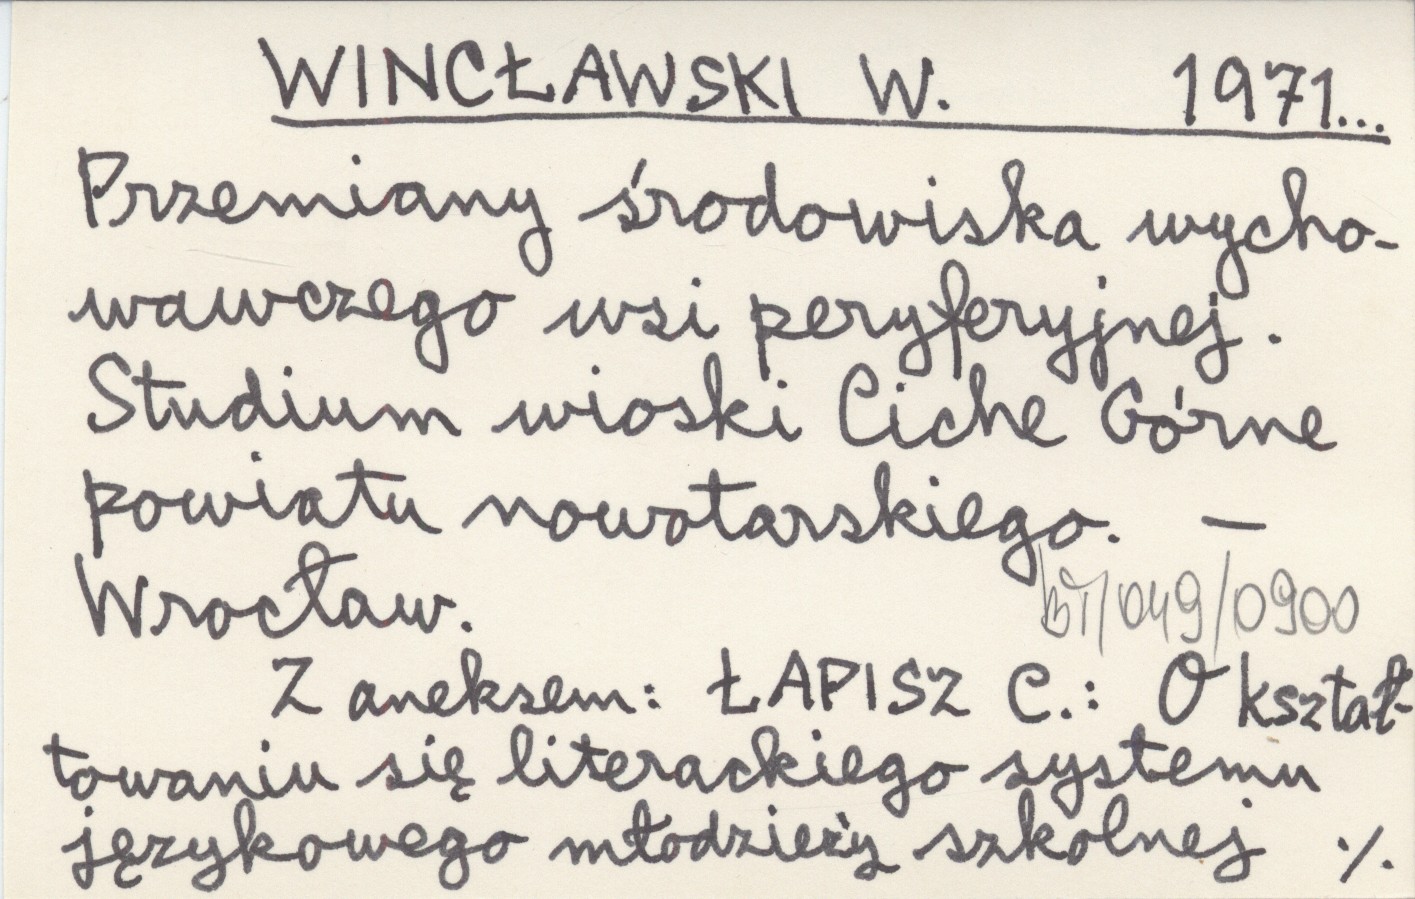 WINCŁAWSKI W. 1971...
Przemiany środowiska wycho-
wawczego wsi peryferyjnej.
Studium wioski Ciche Górne
powiatu nowotarskiego. —
Wrocław.
/049/0900
Z aneksem: ŁAPISZ C.: O kształ-
towaniu się literackiego systemu
językowego młodzieży szkolnej ./.